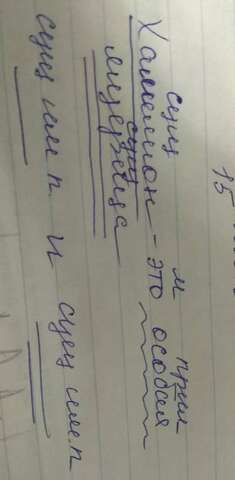 15
сущ м прил
Хамелеон - это особая
сущ
ящерица
сущ им п. и сущ им.п